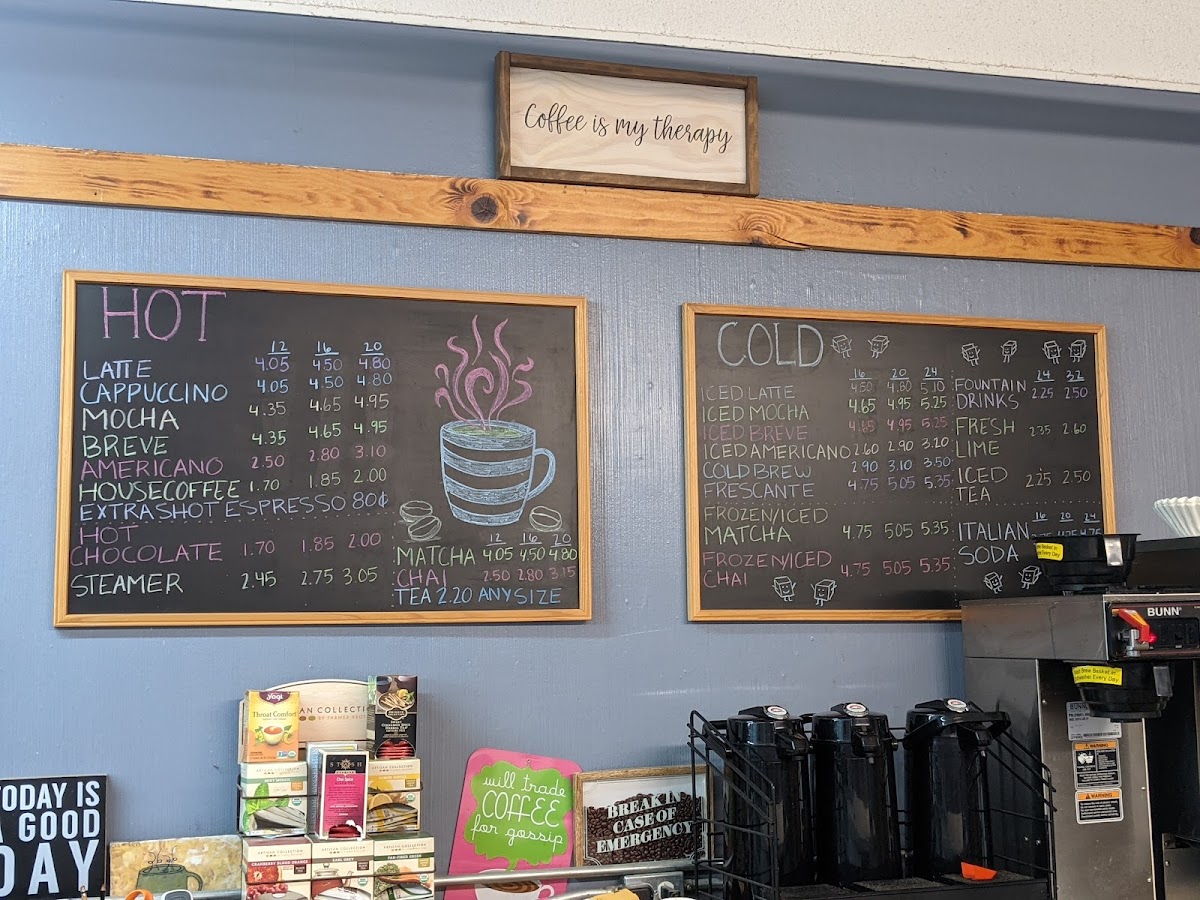 Coffee is my therapy
HOT
12 16 20
LATTE 4.05 4.50 4.80
CAPPUCCINO 4.05 4.50 4.80
MOCHA 4.35 4.65 4.95
BREVE 4.35 4.65 4.95
AMERICANO 2.50 2.80 3.10
HOUSECOFFEE 1.70 1.85 2.00
EXTRA SHOT ESPRESSO 80¢
HOT
CHOCOLATE 1.70 1.85 2.00
STEAMER 2.45 2.75 3.05
12 16 20
MATCHA 4.05 4.50 4.80
CHAI 2.50 2.80 3.15
TEA 2.20 ANY SIZE
COLD
16 20 24
ICED LATTE 4.50 4.80 5.10
ICED MOCHA 4.65 4.95 5.25
ICED BREVE 4.65 4.95 5.25
ICED AMERICANO 2.60 2.90 3.20
COLD BREW 2.90 3.10 3.50
FRESCANTE 4.75 5.05 5.35
FROZEN/ICED
MATCHA 4.75 505 5.35
FROZEN/ICED
CHAI 4.75 505 5.35
24 32
FOUNTAIN
DRINKS 2.25 2.50
FRESH
LIME 2.35 2.60
ICED
TEA 2.25 2.50
16 20 24
ITALIAN
SODA
BUNN
WARNING
WARNING
yogi
Throat Comfort
STASH
Chai Spice
EARL GREY
TODAY IS
A GOOD
DAY
will trade
COFFEE
for gossip
BREAK IN
CASE OF
EMERGENCY